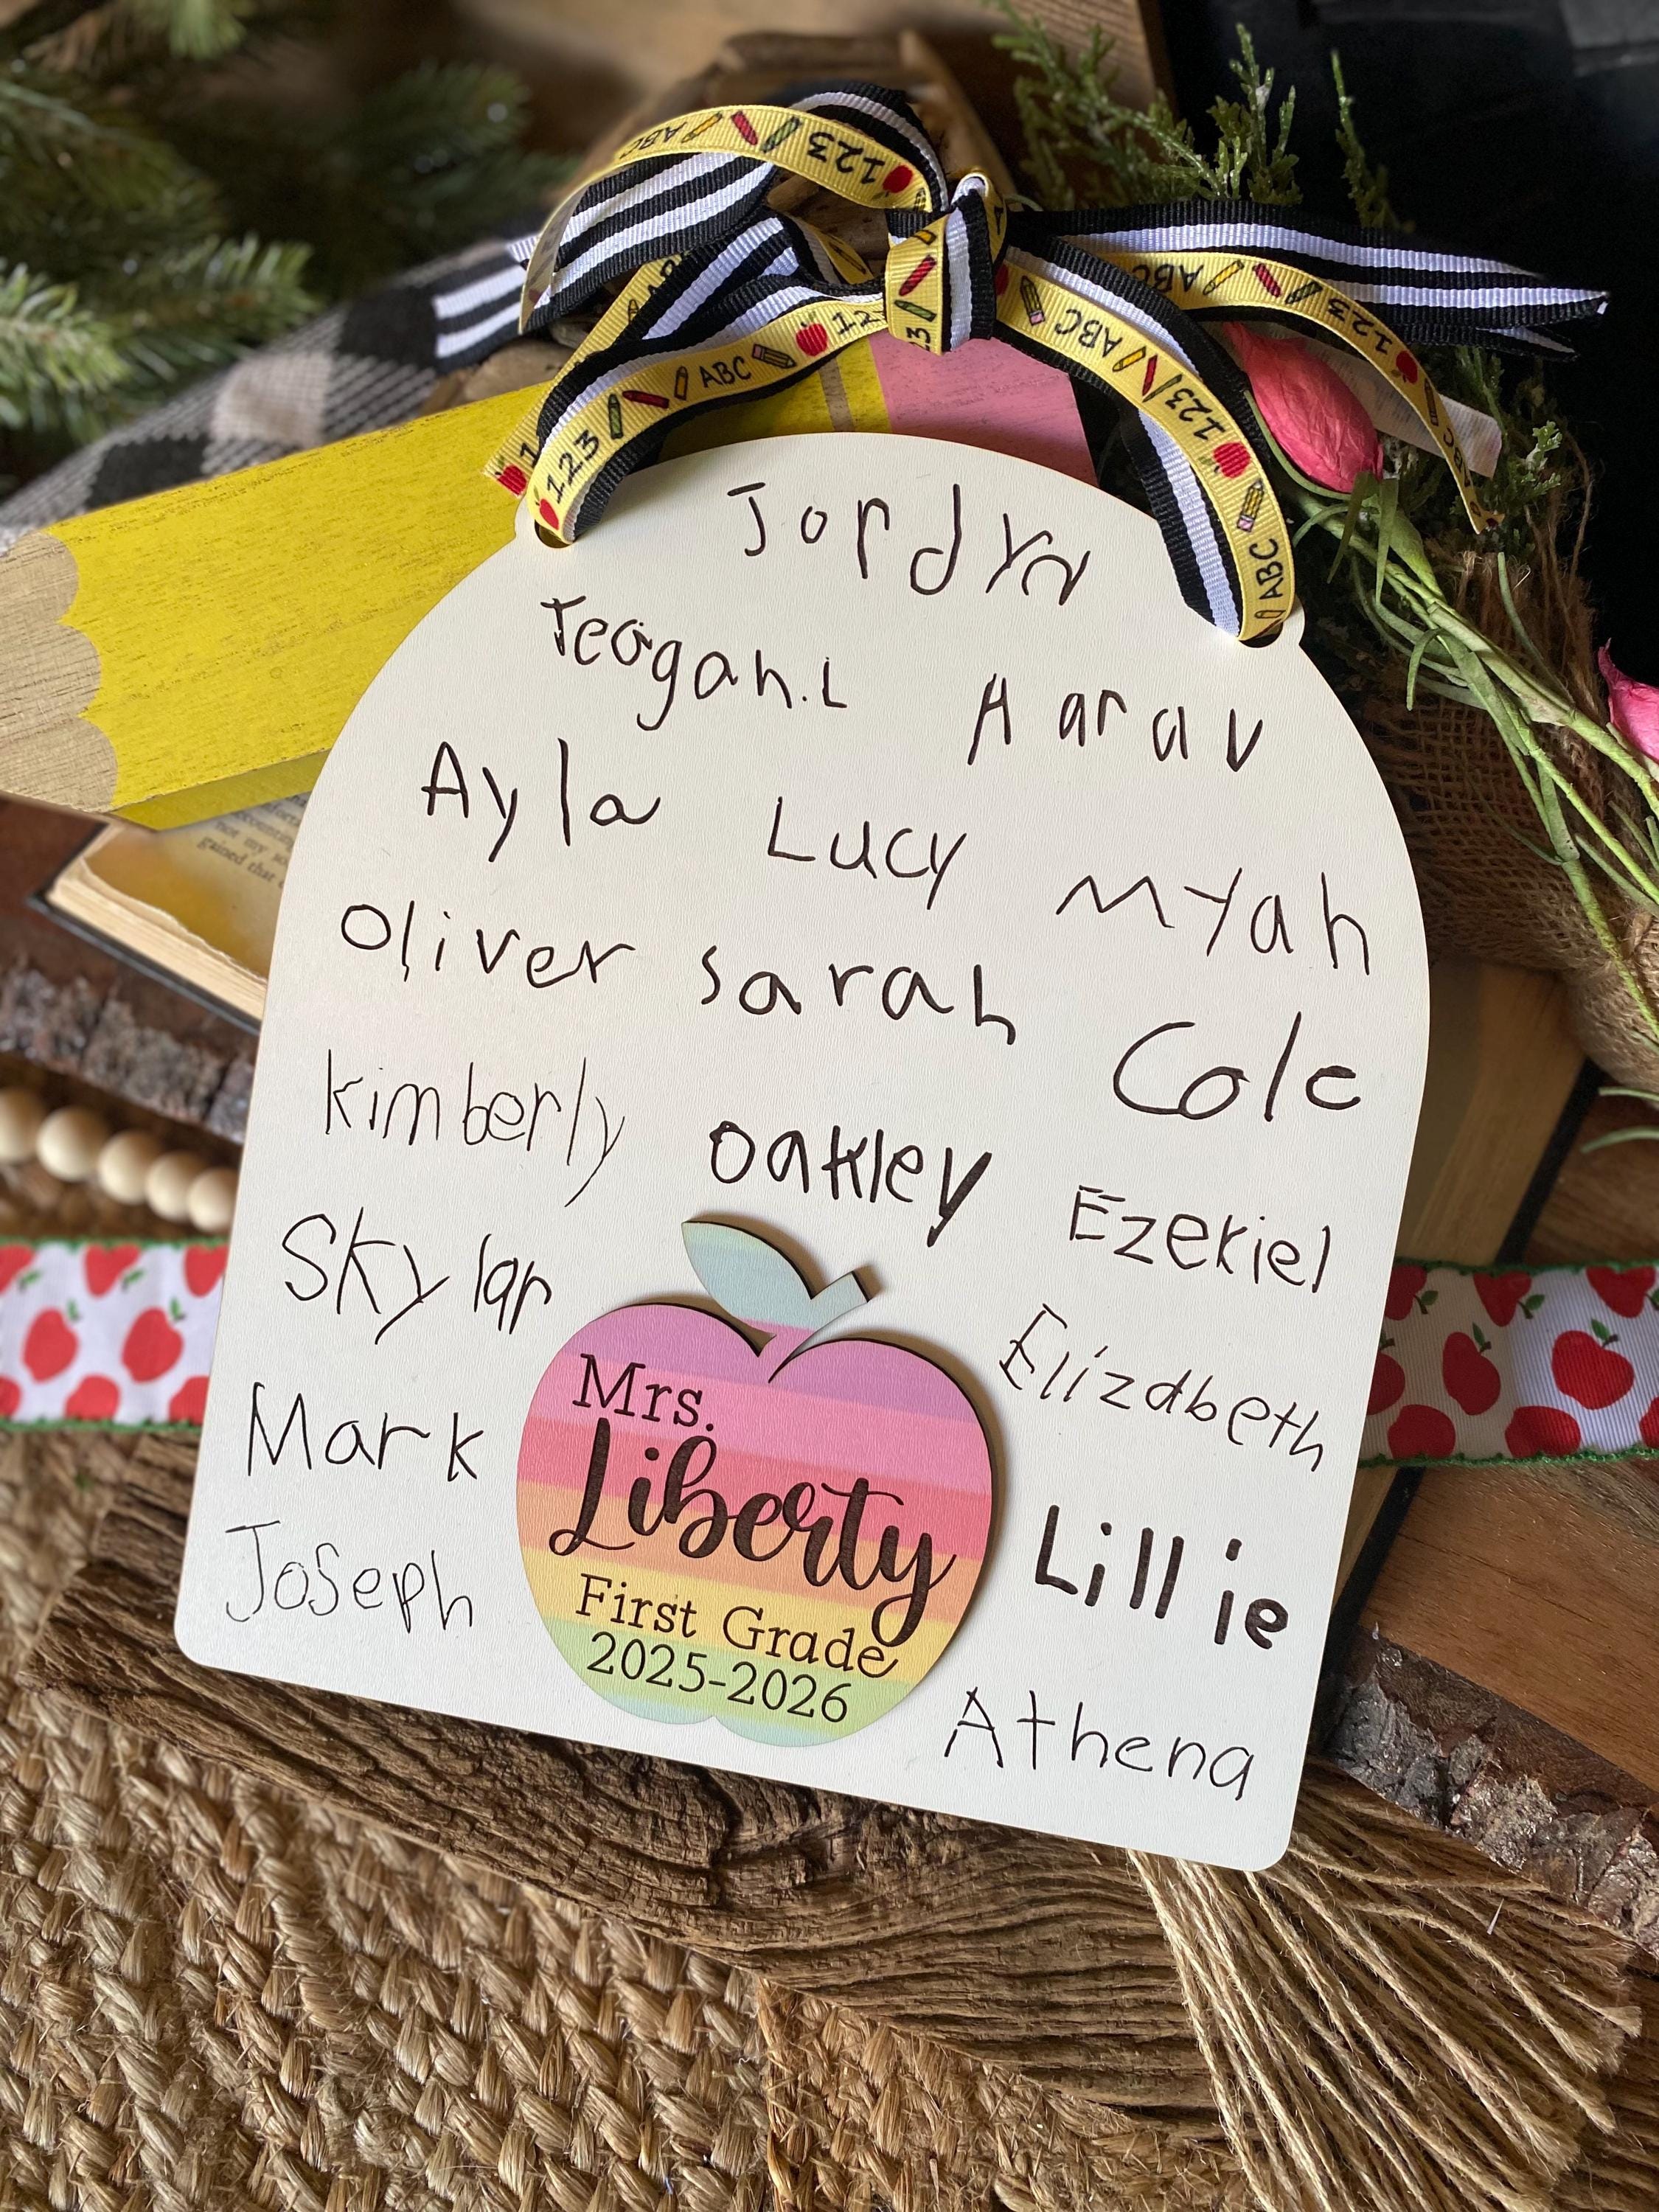 Jordyn
Teagan.L Aarav
Ayla Lucy Myah
Oliver sarah Cole
kimberly oakley Ezekiel
Skylar Elizabeth
Mark Lillie
Joseph Athena
Mrs.
Liberty
First Grade
2025-2026
ABC 123
ABC 123
123 ABC 123
ABC ABC 123 ABC
ABC 123 ABC